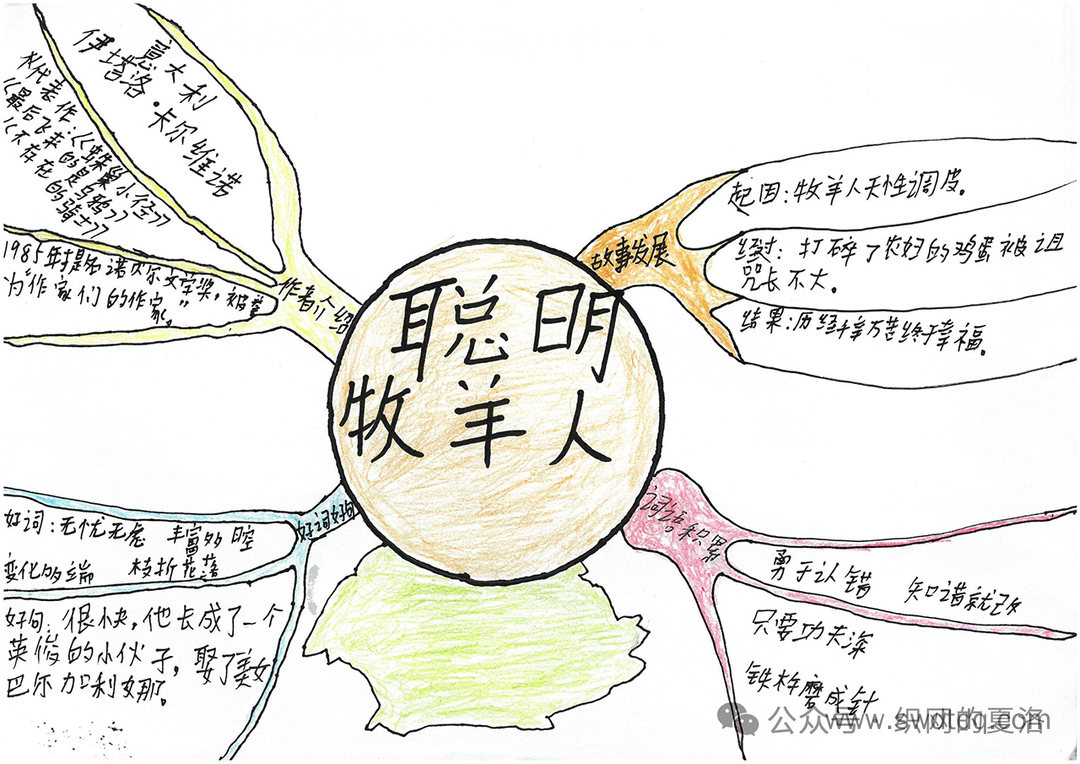 聪明
牧羊人
作者介绍
意大利
伊塔洛·卡尔维诺
代表作:《蛛巢小径》
《最后飞来的是乌鸦》
《不存在的骑士》
1985年提名诺贝尔文学奖,被誉
为“作家们的作家。”
故事发展
起因:牧羊人天性调皮。
经过:打碎了农妇的鸡蛋被诅
咒长不大。
结果:历经千辛万苦终于幸福。
好词好句
好词:无忧无虑 丰富多腔
变化多端 枝折花落
好句:很快,他长成了一个
英俊的小伙子,娶了美女
巴尔加利娜那。
词语积累
勇于认错 知错就改
只要功夫深
铁杵磨成针
公众号 · 织网的夏洛